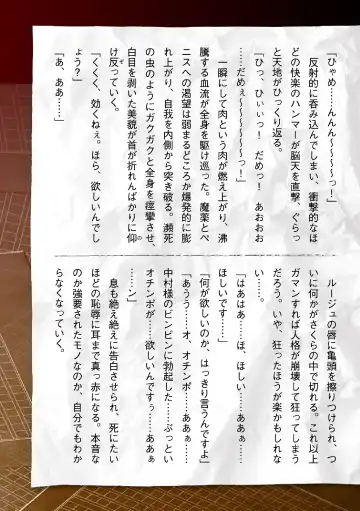 「ひゃめ……んんん〜〜〜〜っ！」
　反射的に呑み込んでしまい、衝撃的なほ
どの快楽のハンマーが脳天を直撃、ぐらっ
と天地がひっくり返る。
「ひっ、ひぃぃっ！　だめっ！　あおおお
……だめぇ〜〜〜〜〜〜っ！」
　一瞬にして肉という肉が燃え上がり、沸
騰する血流が全身を駆け巡った。魔薬とペ
ニスへの渇望は弱まるどころか爆発的に膨
れ上がり、自我を内側から突き破る。瀕死
の虫のようにガクガクと全身を痙攣させ、
白目を剥きの美貌が首が折れんばかりに仰
け反っていく。
「くくく、効くねぇ。ほら、欲しいんでし
ょう？」
「あ、ああ……」
　ルージュの唇に亀頭を擦りつけられ、つ
いに何かがさくらの中で切れる。これ以上
ガマンすれば人格が崩壊して狂ってしまう
だろう。いや、狂ったほうが楽かもしれな
い……。
「はあはあ……ほ、ほしい……ああぁ……
ほしいです……」
「何が欲しいのか、はっきり言うんですよ」
「あうう……オ、オチンポ……ああぁ……
中村様のビンビンに勃起した……ぶっとい
オチンポが……欲しいんですぅ……ああぁ
……ン」
　息も絶え絶えに告白させられ、死にたい
ほどの恥辱に耳まで真っ赤になる。本音な
のか強要されたモノなのか、自分でもわか
らなくなっていく。